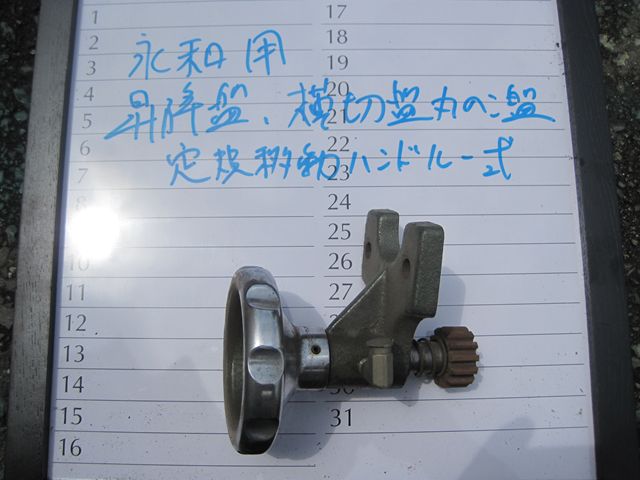 1
2
3
4
5
6
7
8
10
11
12
13
14
15
16
17
18
19
20
21
22
23
24
25
26
27
30
31
永和用
昇降盤、横切盤丸のこ盤
定規移動ハンドル一式